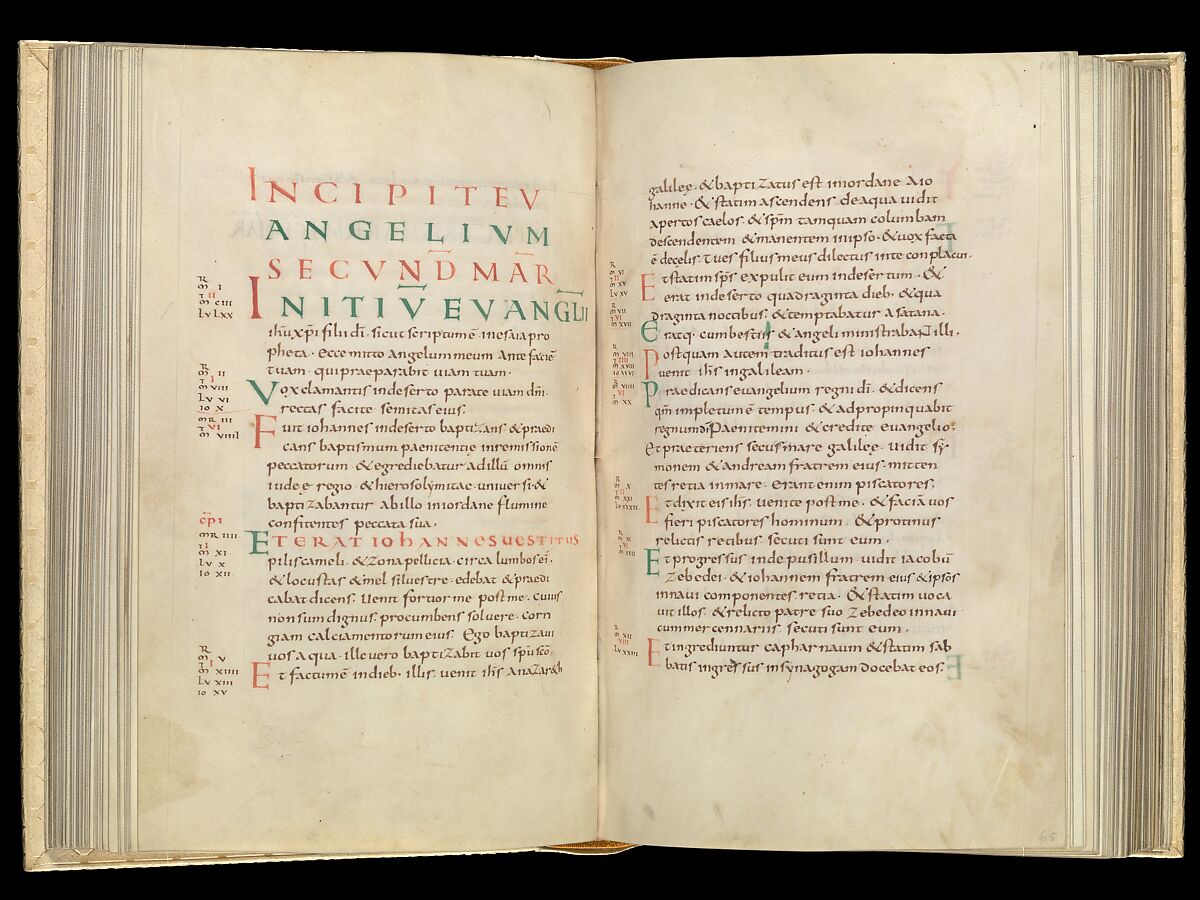 INCIPIT EV
ANGELIVM
SECVND MAR
INITIV EVANGLII
ihu xpi filii di. sicut scriptum e. in esaia pro
pheta. Ecce mitto angelum meum ante facie
tuam. qui praeparabit uiam tuam.
Vox clamantis in deserto parate uiam dni.
rectas facite semitas eius.
Fuit iohannes in deserto baptizans. & praedi
cans baptismum paenitentiȩ in remissione
peccatorum. & egrediebatur ad illu omnis
iudeȩ regio. & hierosolymitae. uniuersi. &
baptizabantur ab illo in iordane flumine
confitentes peccata sua.
ET ERAT iohANNES UESTITUS
pilis cameli. & zona pellicia. circa lumbos ei.
& locustas & mel siluestre. edebat & praedi
cabat dicens. Uenit fortior me post me. cuius
non sum dignus. procumbens soluere. corri
giam calciamentorum eius. Ego baptizaui
uos aqua. ille uero baptizabit uos spu sco.
Et factum e in dieb. illis. uenit ihs a nazareth
R
M I
T II
M CIII
LV LXX
R
M II
T I
M VIII
LV VI
IO X
MR III
T VI
M VIIII
CPI
MR IIII
T I
M XI
LV X
IO XII
R
M V
T I
M XIIII
LV XIII
IO XV
galileȩ. & baptizatus est in iordane a io
hanne. & statim ascendens de aqua uidit
apertos caelos. & spm tamquam columbam
descendentem & manentem in ipso. & uox facta
e de celis. tu es filius meus dilectus in te conplacui.
Et statim sps expulit eum in desertum. &
erat in deserto quadraginta dieb. & qua
draginta noctibus. & temptabatur a satana.
Eratq. cum bestiis & angeli ministrabant illi.
Postquam autem traditus est iohannes
uenit ihs in galileam.
Praedicans euangelium regni di. & dicens
qm impletum e tempus. & adpropinquabit
regnum di Paenitemini & credite euangelio.
Et praeteriens secus mare galileȩ. uidit sy
monem & andream fratrem eius. mitten
tes retia in mare. Erant enim piscatores.
Et dixit eis ihs. uenite post me. & facia uos
fieri piscatores hominum. & protinus
relictis retibus secuti sunt eum.
Et progressus inde pusillum. uidit iacobu
zebedei. & iohannem fratrem eius & ipsos
in naui componentes retia. & statim uoca
uit illos. & relicto patre suo zebedeo in naui
cum mercennariis. secuti sunt eum.
Et ingrediuntur capharnaum & statim sab
batis ingressus in synagogam docebat eos.
65